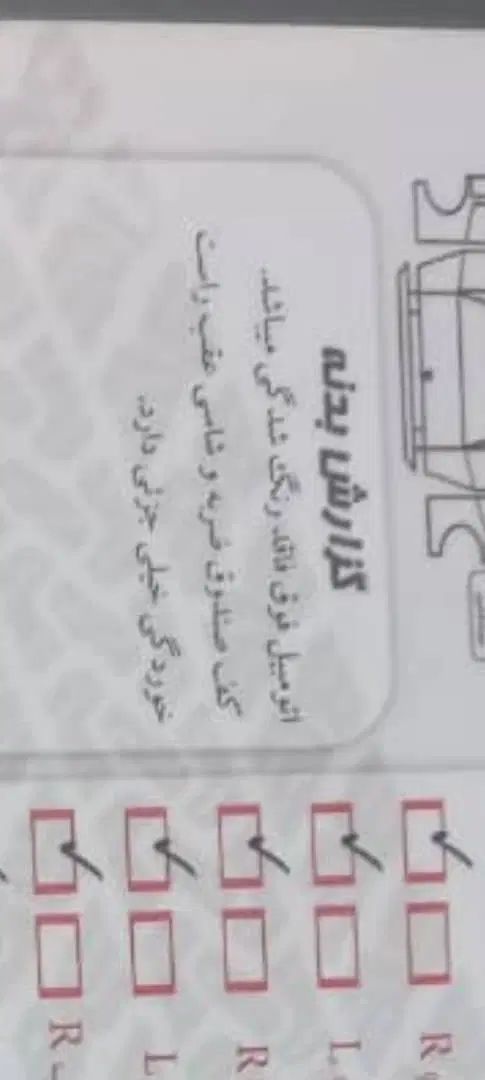 گزارش بدنه
اتومبیل فوق فاقد رنگ شدگی میباشد.
کف صندوق ضربه و شاسی عقب راست
خوردگی خیلی جزئی دارد.
R
L
R
L
R